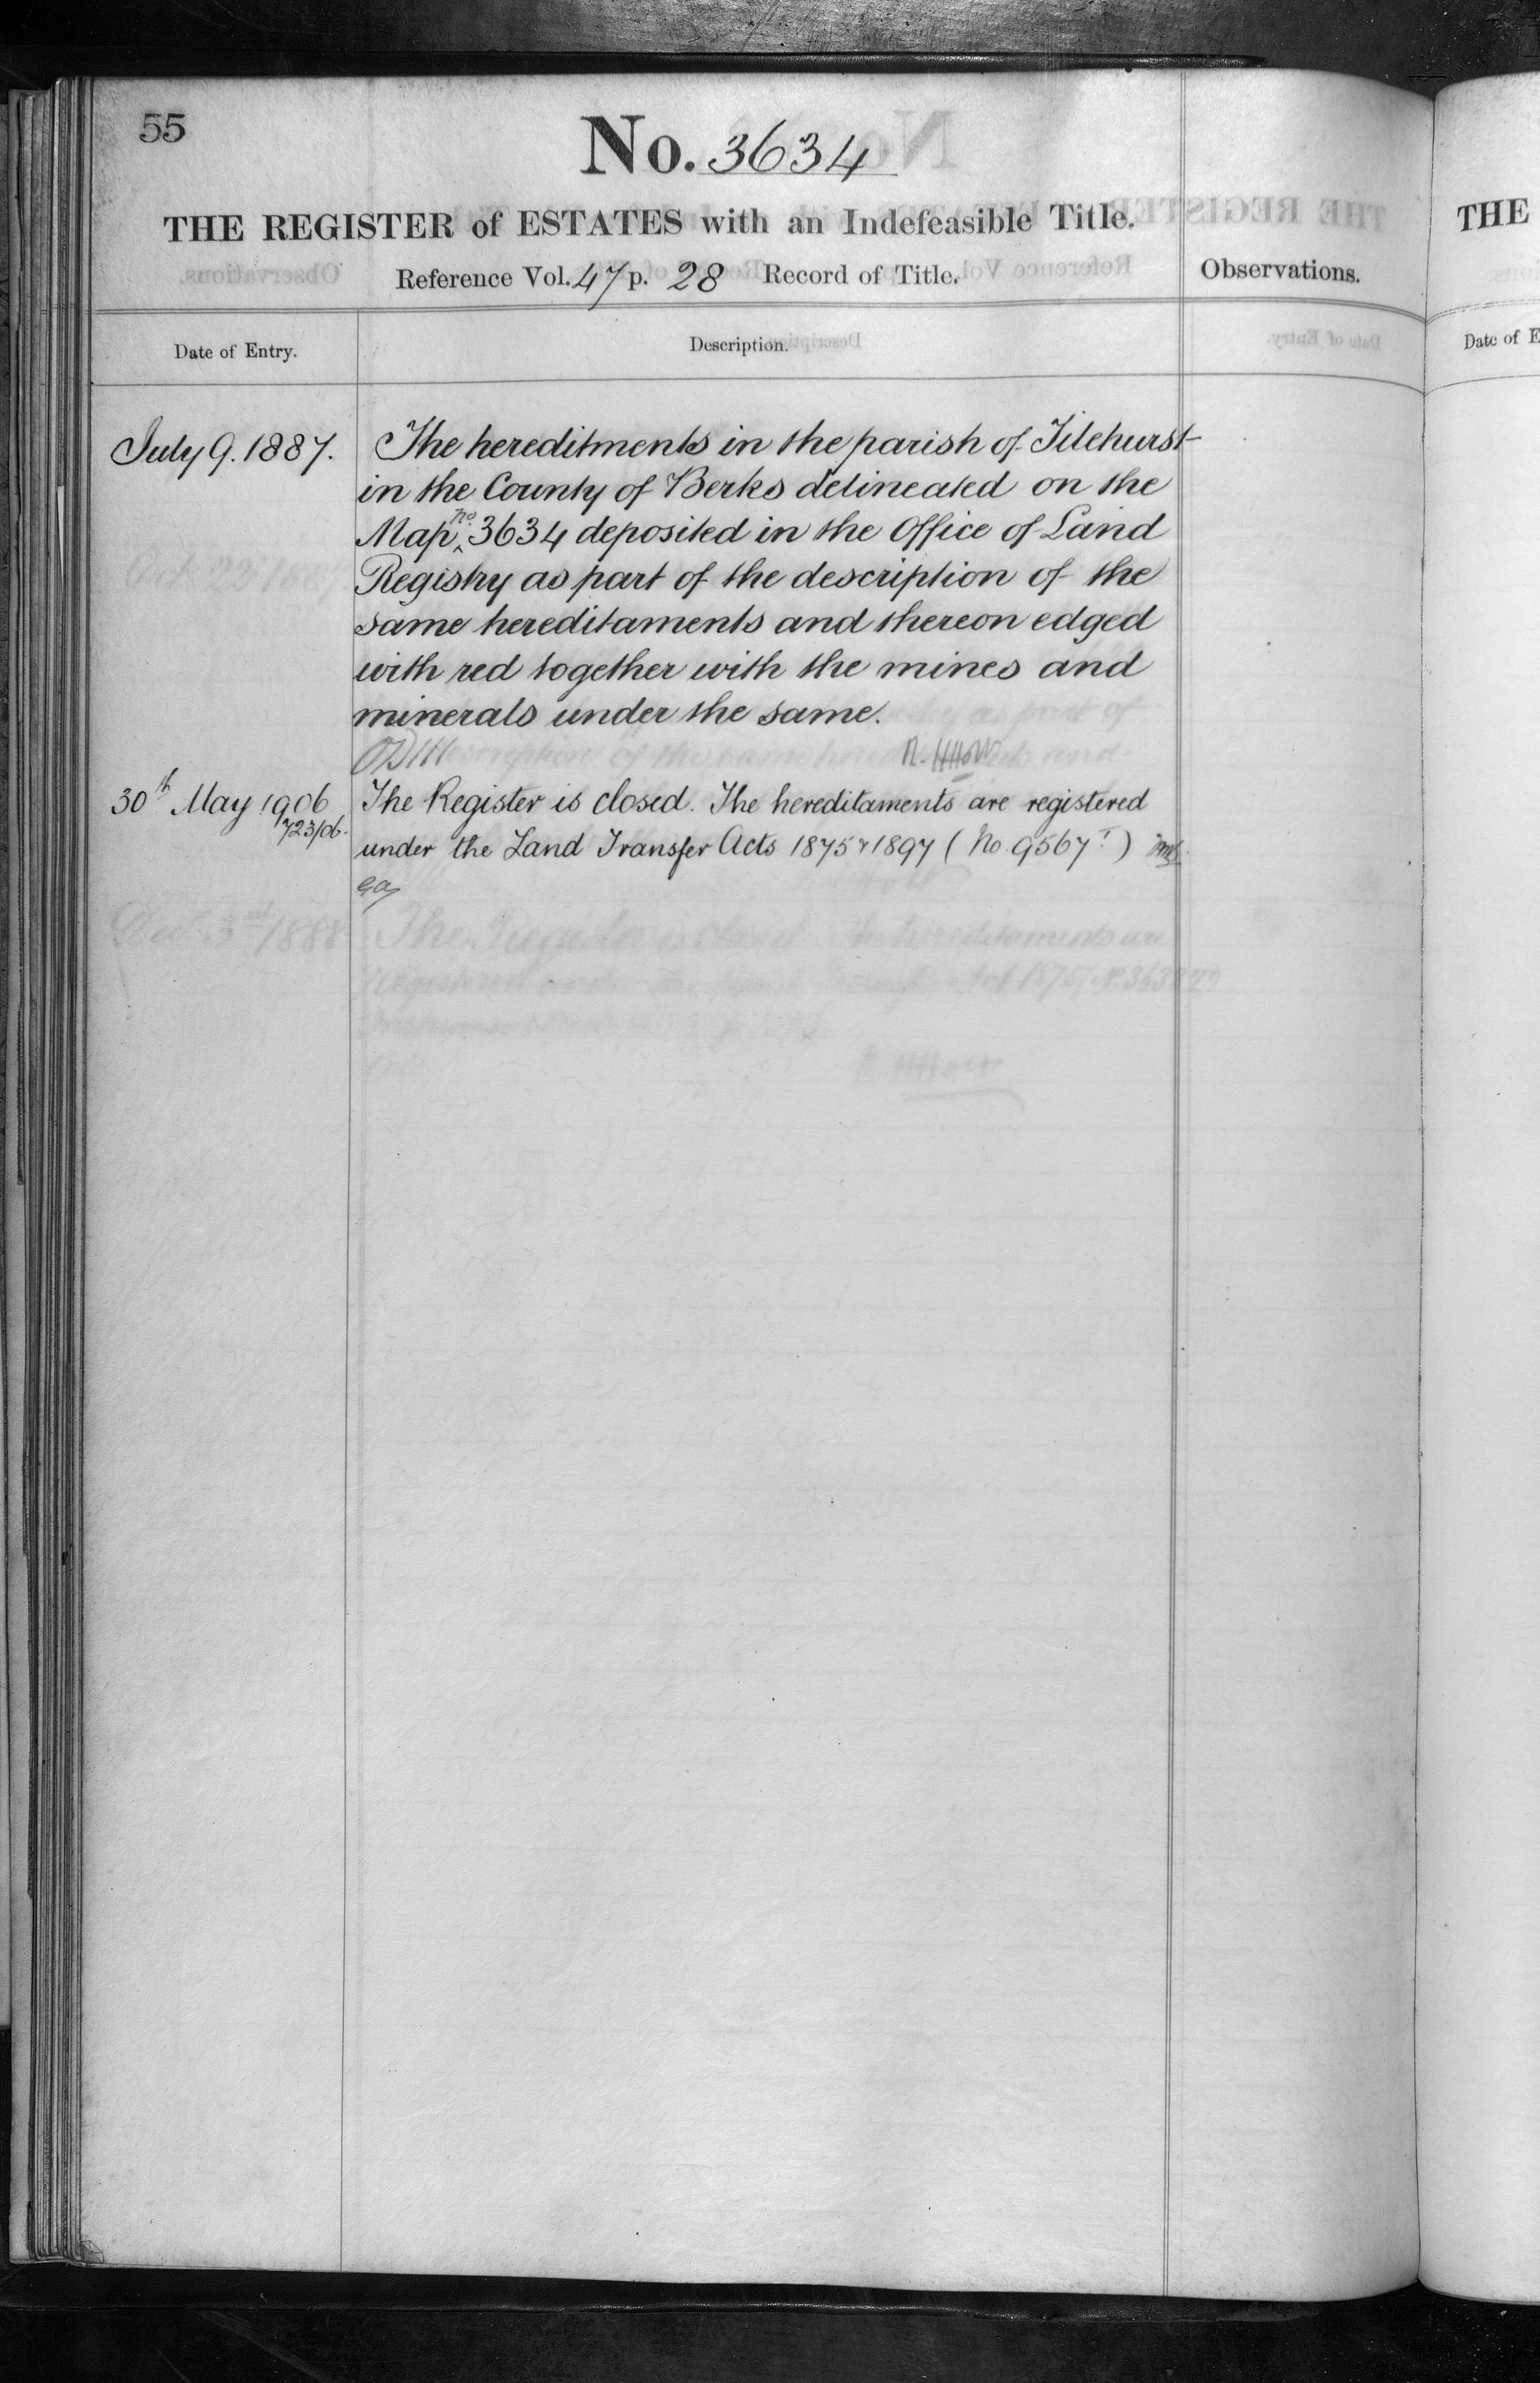 55
No. 3634
THE REGISTER of ESTATES with an Indefeasible Title.
Reference Vol. 47 p. 28 Record of Title.
Observations.
Date of Entry.
Description.
July 9. 1887.
The hereditments in the parish of Tilehurst
in the County of Berks delineated on the
Map no. 3634 deposited in the Office of Land
Registry as part of the description of the
same hereditaments and thereon edged
with red together with the mines and
minerals under the same.
R. HHolt
30th May 1906
723/06.
The Register is closed. The hereditaments are registered
under the Land Transfer Acts 1875 & 1897 (No. 9567 T)
THE
Date of E